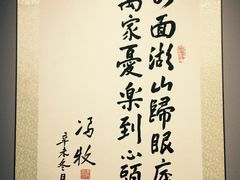 四面湖山歸眼底
萬家憂樂到心頭
辛未冬日
冯牧